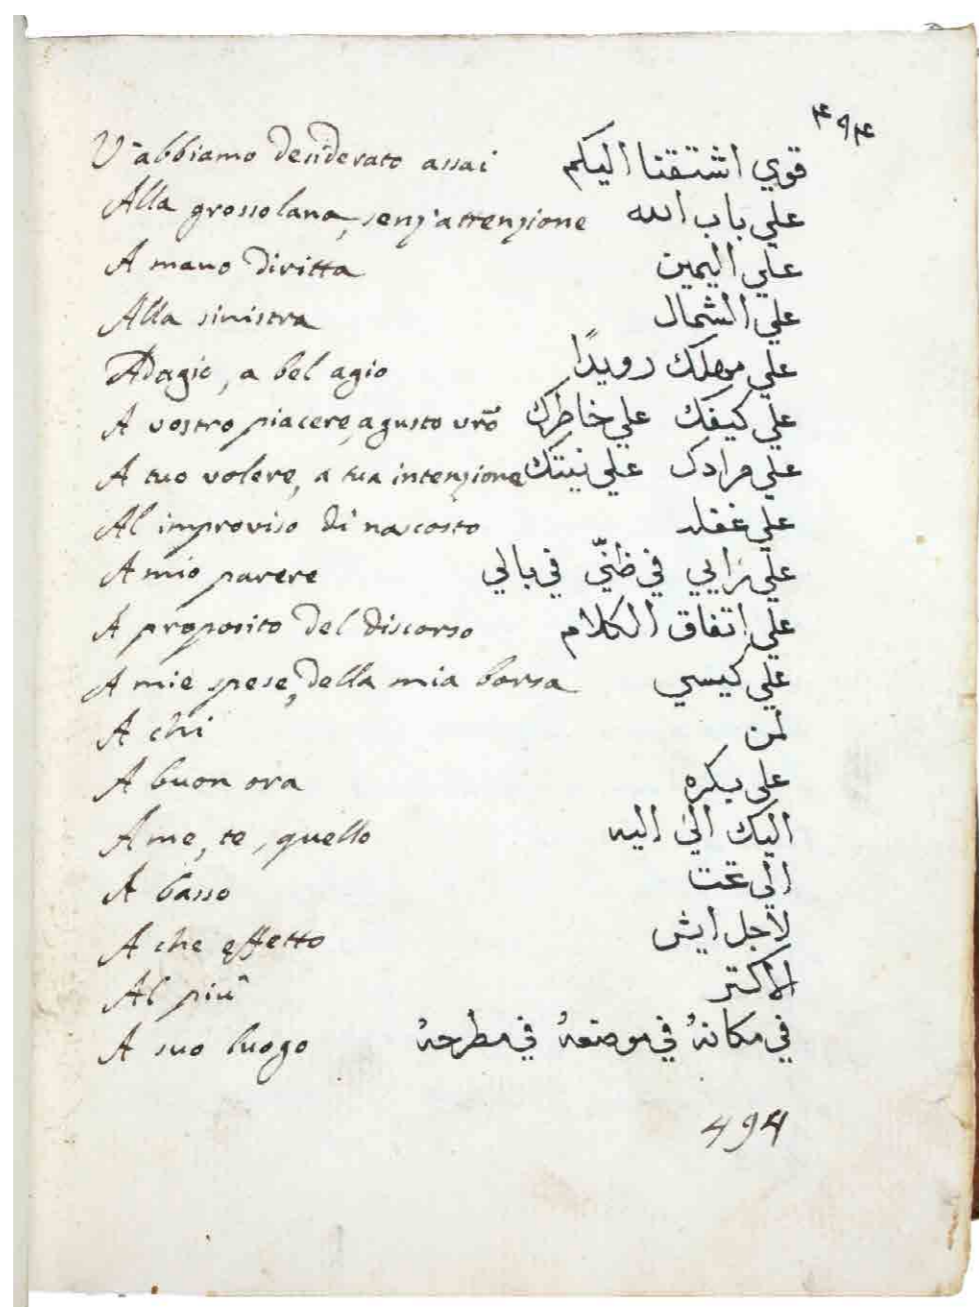 ٤٩٤
V'abbiamo desiderato assai قوي اشتقنا اليكم
Alla grossolana, senz'attenzione علي باب الله
A mano diritta علي اليمين
Alla sinistra علي الشمال
Adagio, a bel agio علي مهلك رويدًا
A vostro piacere, a gusto vrõ علي كيفك علي خاطرك
A tuo volere, a tua intenzione علي مرادك علي نيتك
Al improviso di nascosto علي غفله
A mio parere علي رايي في ظنّي في بالي
A proposito del discorso علي اتفاق الكلام
A mie spese, della mia borsa علي كيسي
A chi لمن
A buon ora علي بكره
A me, te, quello اليك الي اليه
A basso الي تحت
A che effetto لاجل ايش
Al più الاكتر
A suo luogo في مكانهُ في موضعهُ في مطرحهُ
494